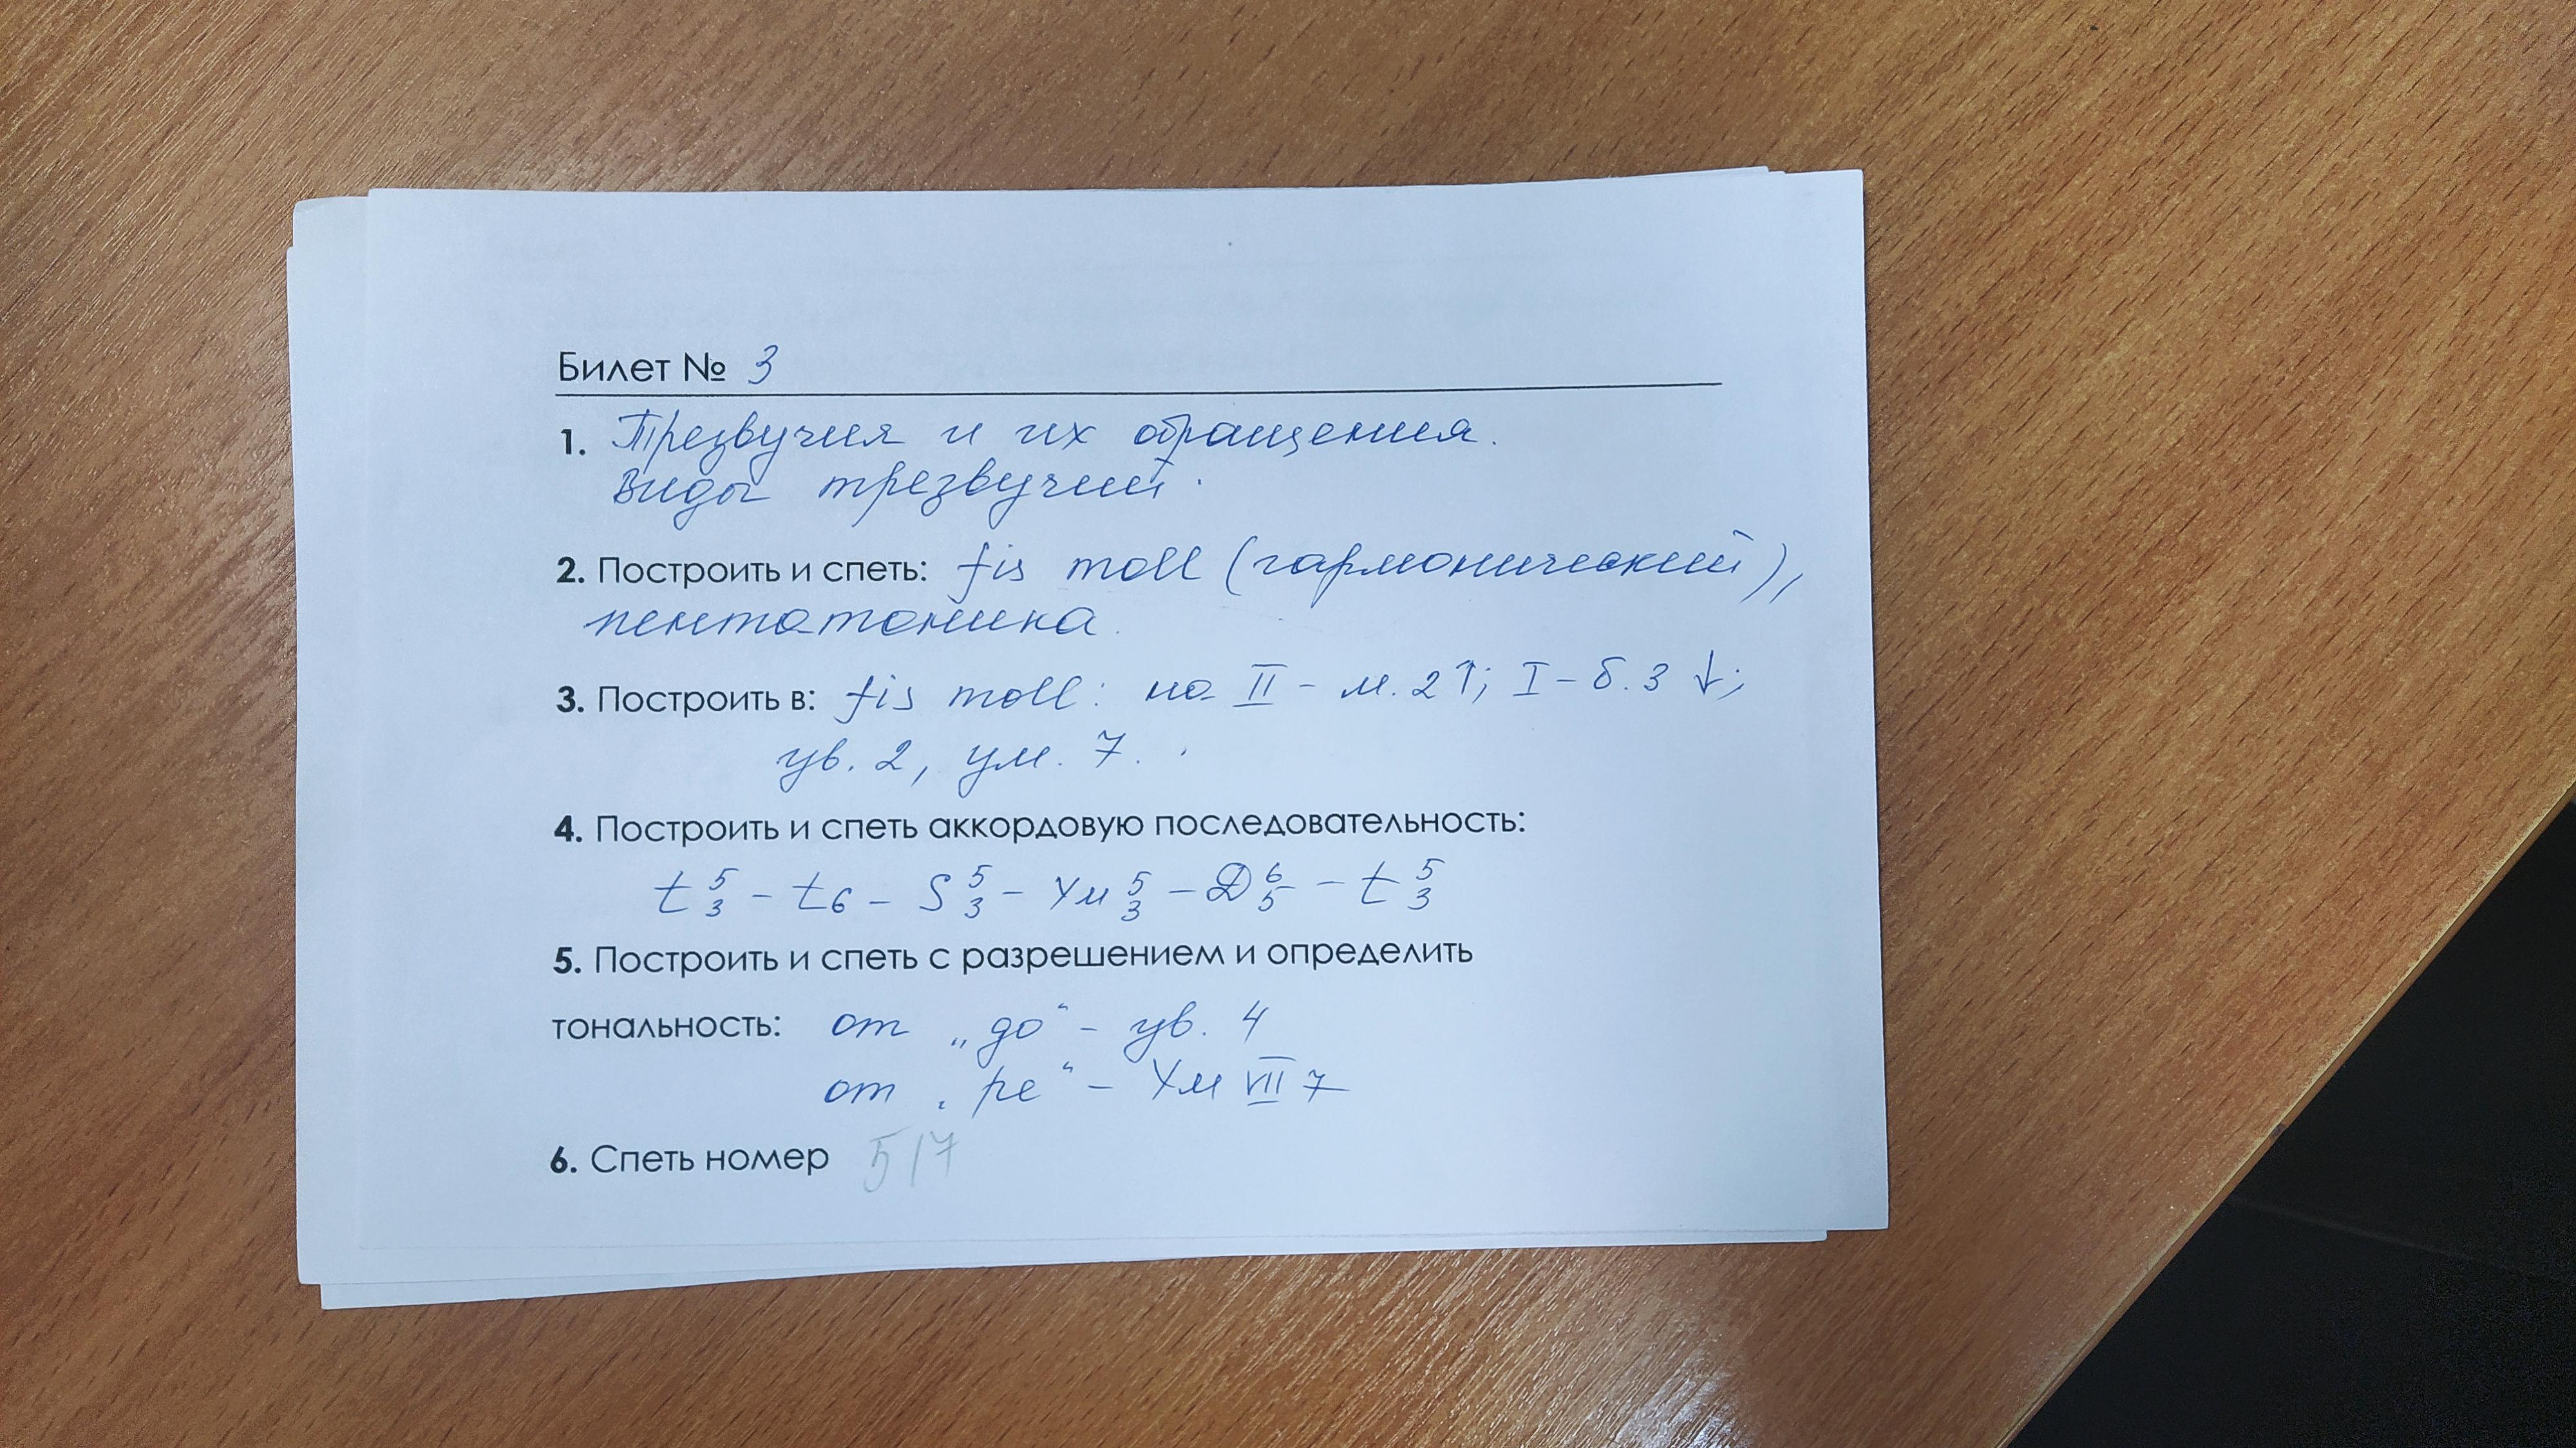 Билет № 3
1. Трезвучия и их обращения.
Виды трезвучий.
2. Построить и спеть: fis moll (гармонический),
пентатоника.
3. Построить в: fis moll: на II - м. 2↑; I - б. 3 ↓;
ув. 2, ум. 7.
4. Построить и спеть аккордовую последовательность:
t 5/3 - t6 - S 5/3 - Ум 5/3 - D 6/5 - t 5/3
5. Построить и спеть с разрешением и определить
тональность: от „до“ - ув. 4
от „ре“ - Ум VII 7
6. Спеть номер 517